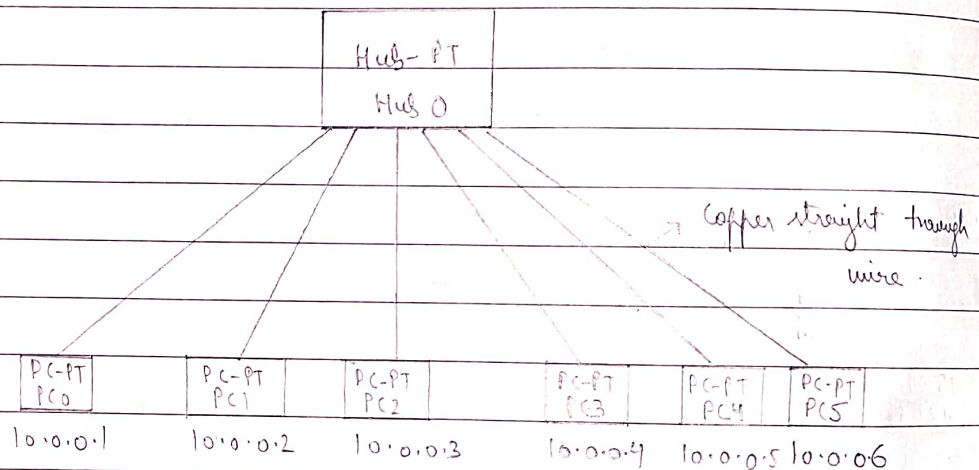 Hub-PT
Hub 0
Copper straight through
wire.
PC-PT
PC0
PC-PT
PC1
PC-PT
PC2
PC-PT
PC3
PC-PT
PC4
PC-PT
PC5
10.0.0.1
10.0.0.2
10.0.0.3
10.0.0.4
10.0.0.5
10.0.0.6